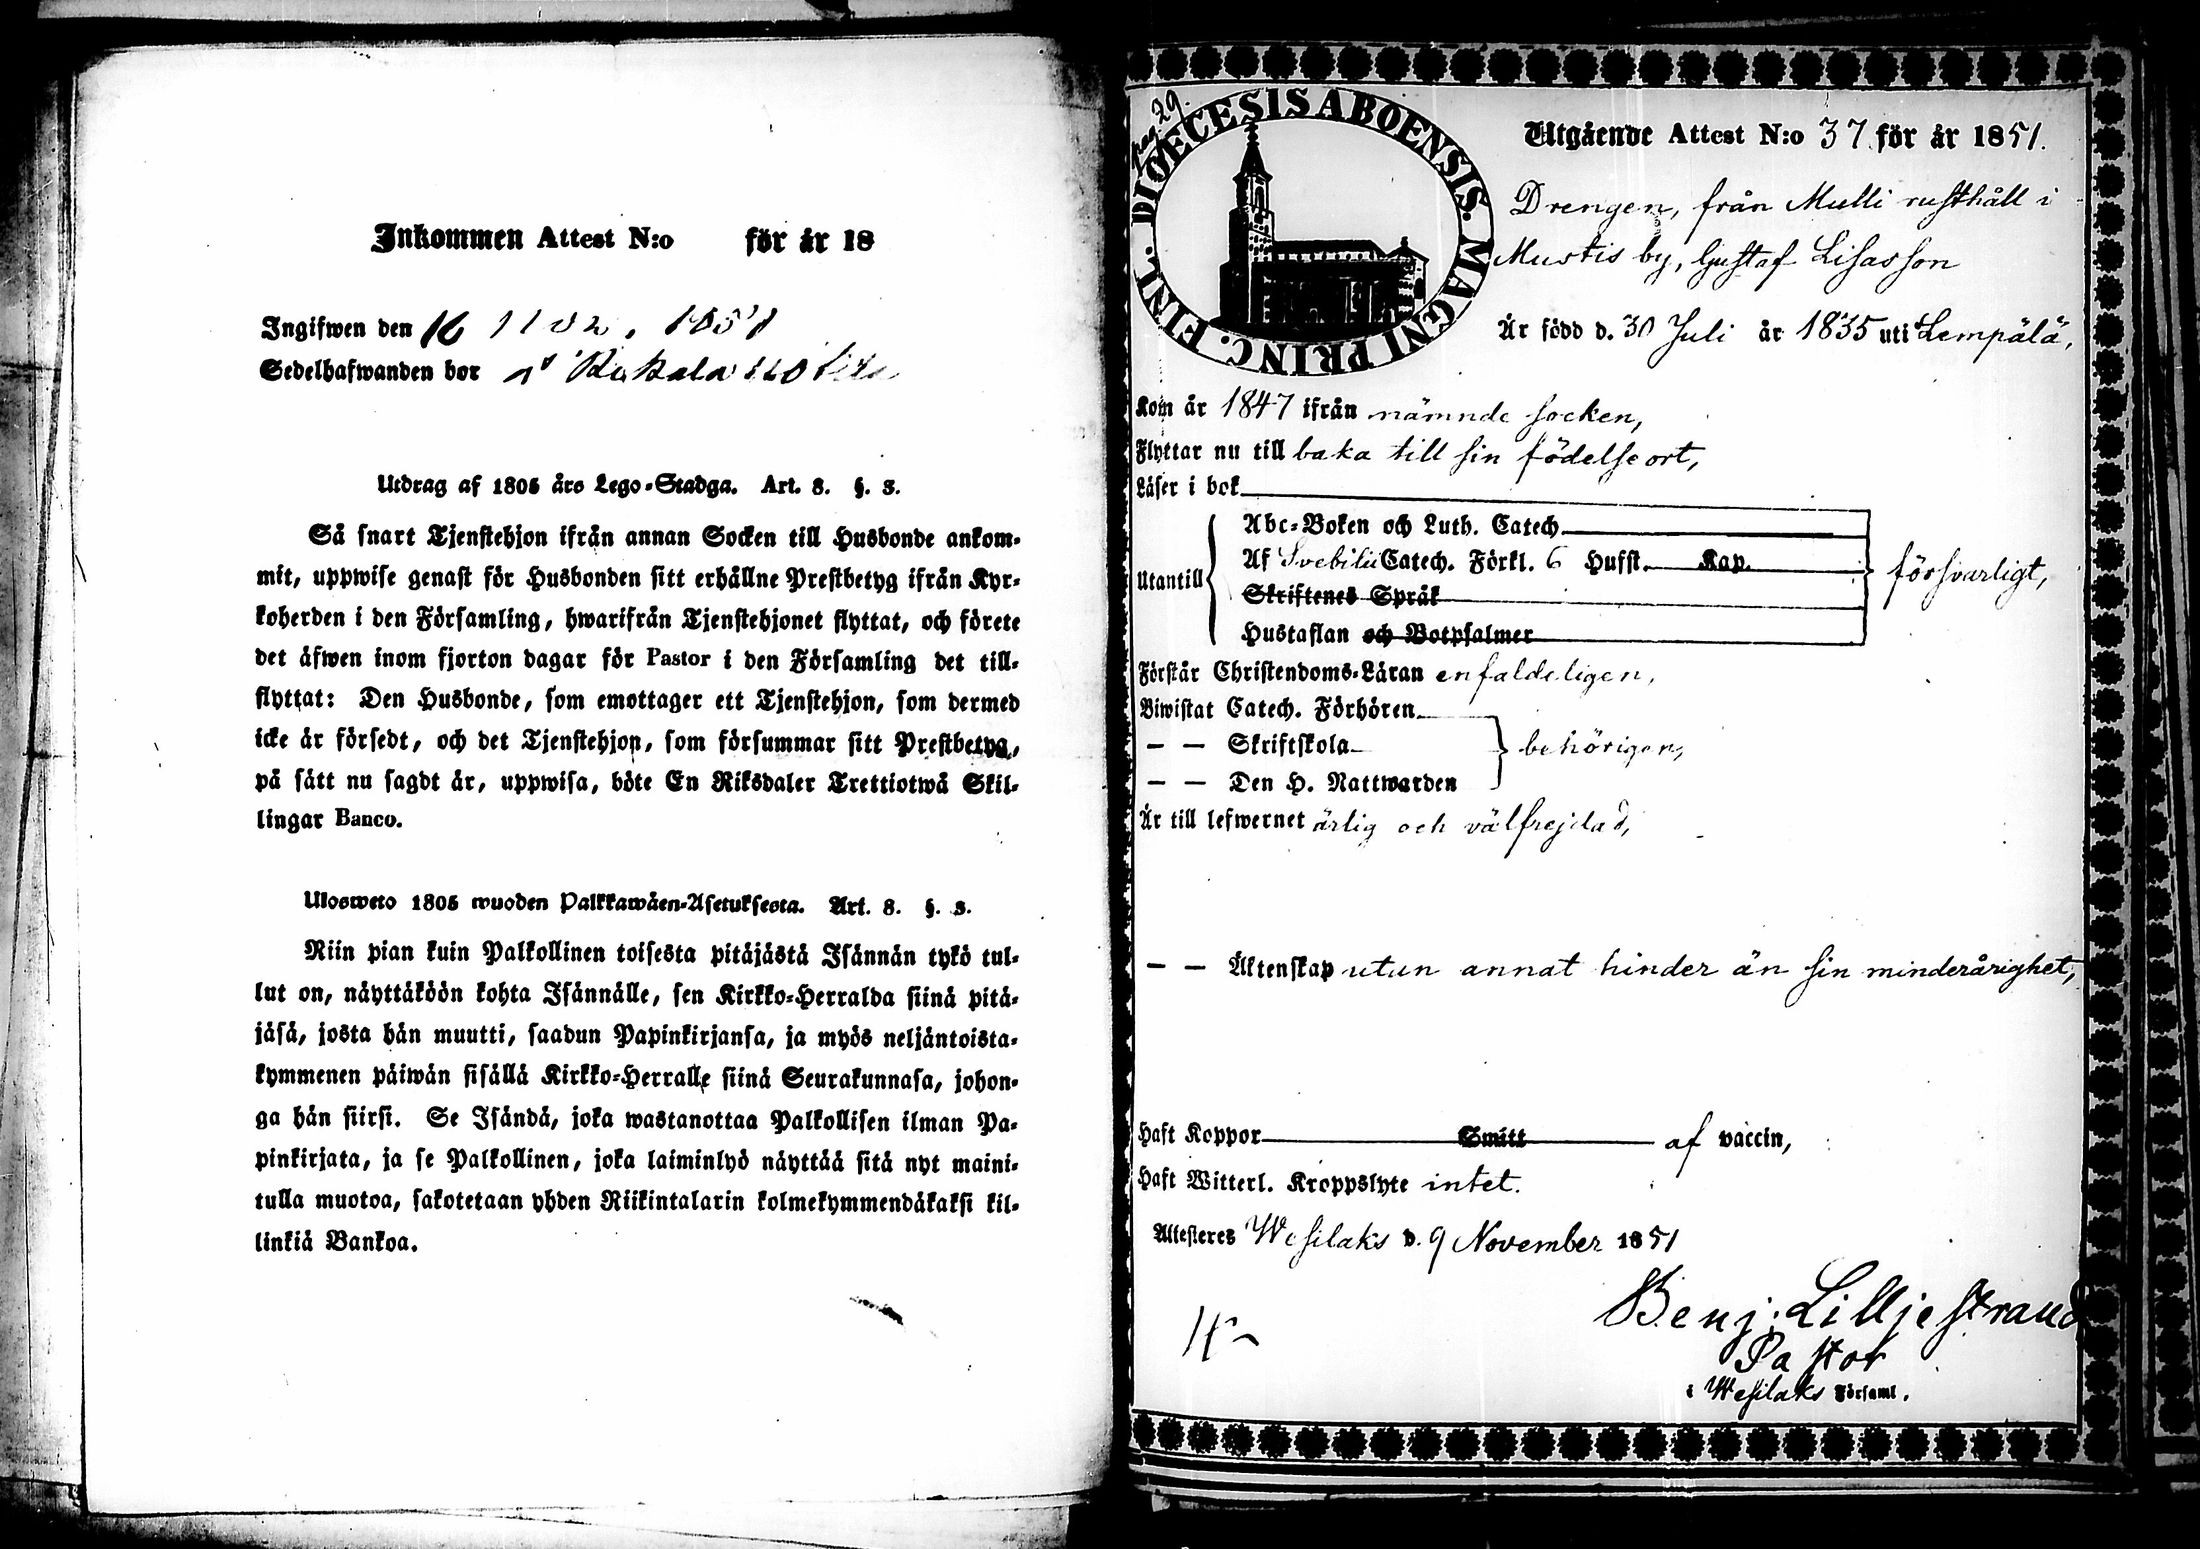 Inkommen Attest N:o för år 18
Ingifwen den 16 Nov. 1851
Sedelhafwanden bor
Utdrag af 1805 års Lego-Stadga. Art. 8. §. 3.
Så snart Tjenstehjon ifrån annan Socken till Husbonde ankom-
mit, uppwise genast för Husbonden sitt erhållne Prestbetyg ifrån Kyr-
koherden i den Församling, hwarifrån Tjenstehjonet flyttat, och förete
det äfwen inom fjorton dagar för Pastor i den Församling det till-
flyttat: Den Husbonde, som emottager ett Tjenstehjon, som dermed
icke är försedt, och det Tjenstehjon, som försummar sitt Prestbetyg,
på sätt nu sagdt är, uppwisa, böte En Riksdaler Trettiotwå Skil-
lingar Banco.
Ulosweto 1805 wuoden Palkkawäen-Asetuksesta. Art. 8. §. 3.
Niin pian kuin Palkollinen toisesta pitäjästä Isännän tykö tul-
lut on, näyttäköön kohta Isännälle, sen Kirkko-Herralda siinä pitä-
jäsä, josta hän muutti, saadun Papinkirjansa, ja myös neljäntoista-
kymmenen päiwän sisällä Kirkko-Herralle siinä Seurakunnasa, johon-
ga hän siirsi. Se Isändä, joka wastanottaa Palkollisen ilman Pa-
pinkirjata, ja se Palkollinen, joka laiminlyö näyttää sitä nyt maini-
tulla muotoa, sakotetaan yhden Riikintalarin kolmekymmendäkaksi kil-
linkiä Bankoa.
pag. 29.
DIOECESIS ABOENSIS. MAGNI PRINC. FINL.
Utgående Attest N:o 37 för år 1851.
Drengen, från Mulli rusthåll i
Mustis by, Gustaf Lisasson
Är född d. 30 Juli år 1835 uti Lempälä,
Kom år 1847 ifrån nämnde socken,
Flyttar nu till baka till sin födelseort,
Läser i bok
Abc-Boken och Luth. Catech
Utantill Af Svebilii Catech. Förkl. 6 Hufst. Kap. försvarligt,
Skriftenes Språk
Hustaflan och Botpsalmer
Förstår Christendoms-Läran enfaldeligen,
Biwistat Catech. Förhören
— — Skriftskola behörigen,
— — Den H. Nattwarden
Är till lefwernet ärlig och välfrejdad,
— — Äktenskap utan annat hinder än sin minderårighet,
Haft Koppor Smitt af vaccin,
Haft Witterl. Kroppslyte intet.
Attesteres Wesilaks d. 9 November 1851
Benj. Lilljestrand
Pastor
i Wesilaks Församl.